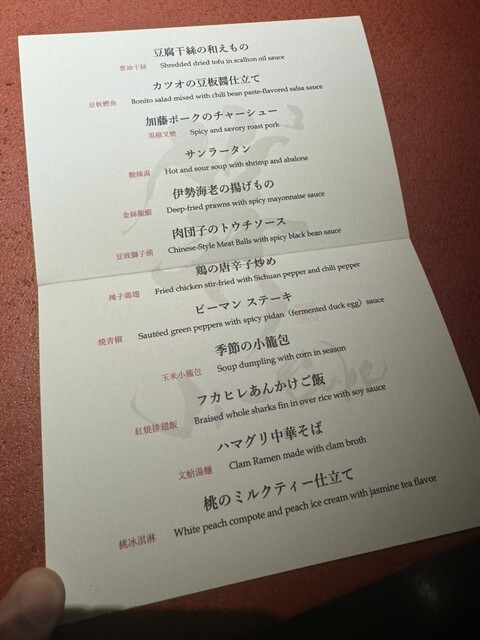 豆腐干絲の和えもの
葱油干絲 Shredded dried tofu in scallion oil sauce
カツオの豆板醤仕立て
豆板鰹魚 Bonito salad mixed with chili bean paste-flavored salsa sauce
加藤ポークのチャーシュー
黒椒叉焼 Spicy and savory roast pork
サンラータン
酸辣湯 Hot and sour soup with shrimp and abalone
伊勢海老の揚げもの
金絲龍蝦 Deep-fried prawns with spicy mayonnaise sauce
肉団子のトウチソース
豆豉獅子頭 Chinese-Style Meat Balls with spicy black bean sauce
鶏の唐辛子炒め
辣子鶏翅 Fried chicken stir-fried with Sichuan pepper and chili pepper
ピーマン ステーキ
焼青椒 Sautéed green peppers with spicy pidan (fermented duck egg) sauce
季節の小籠包
玉米小籠包 Soup dumpling with corn in season
フカヒレあんかけご飯
紅焼排翅飯 Braised whole sharks fin in over rice with soy sauce
ハマグリ中華そば
文蛤湯麺 Clam Ramen made with clam broth
桃のミルクティー仕立て
桃冰淇淋 White peach compote and peach ice cream with jasmine tea flavor